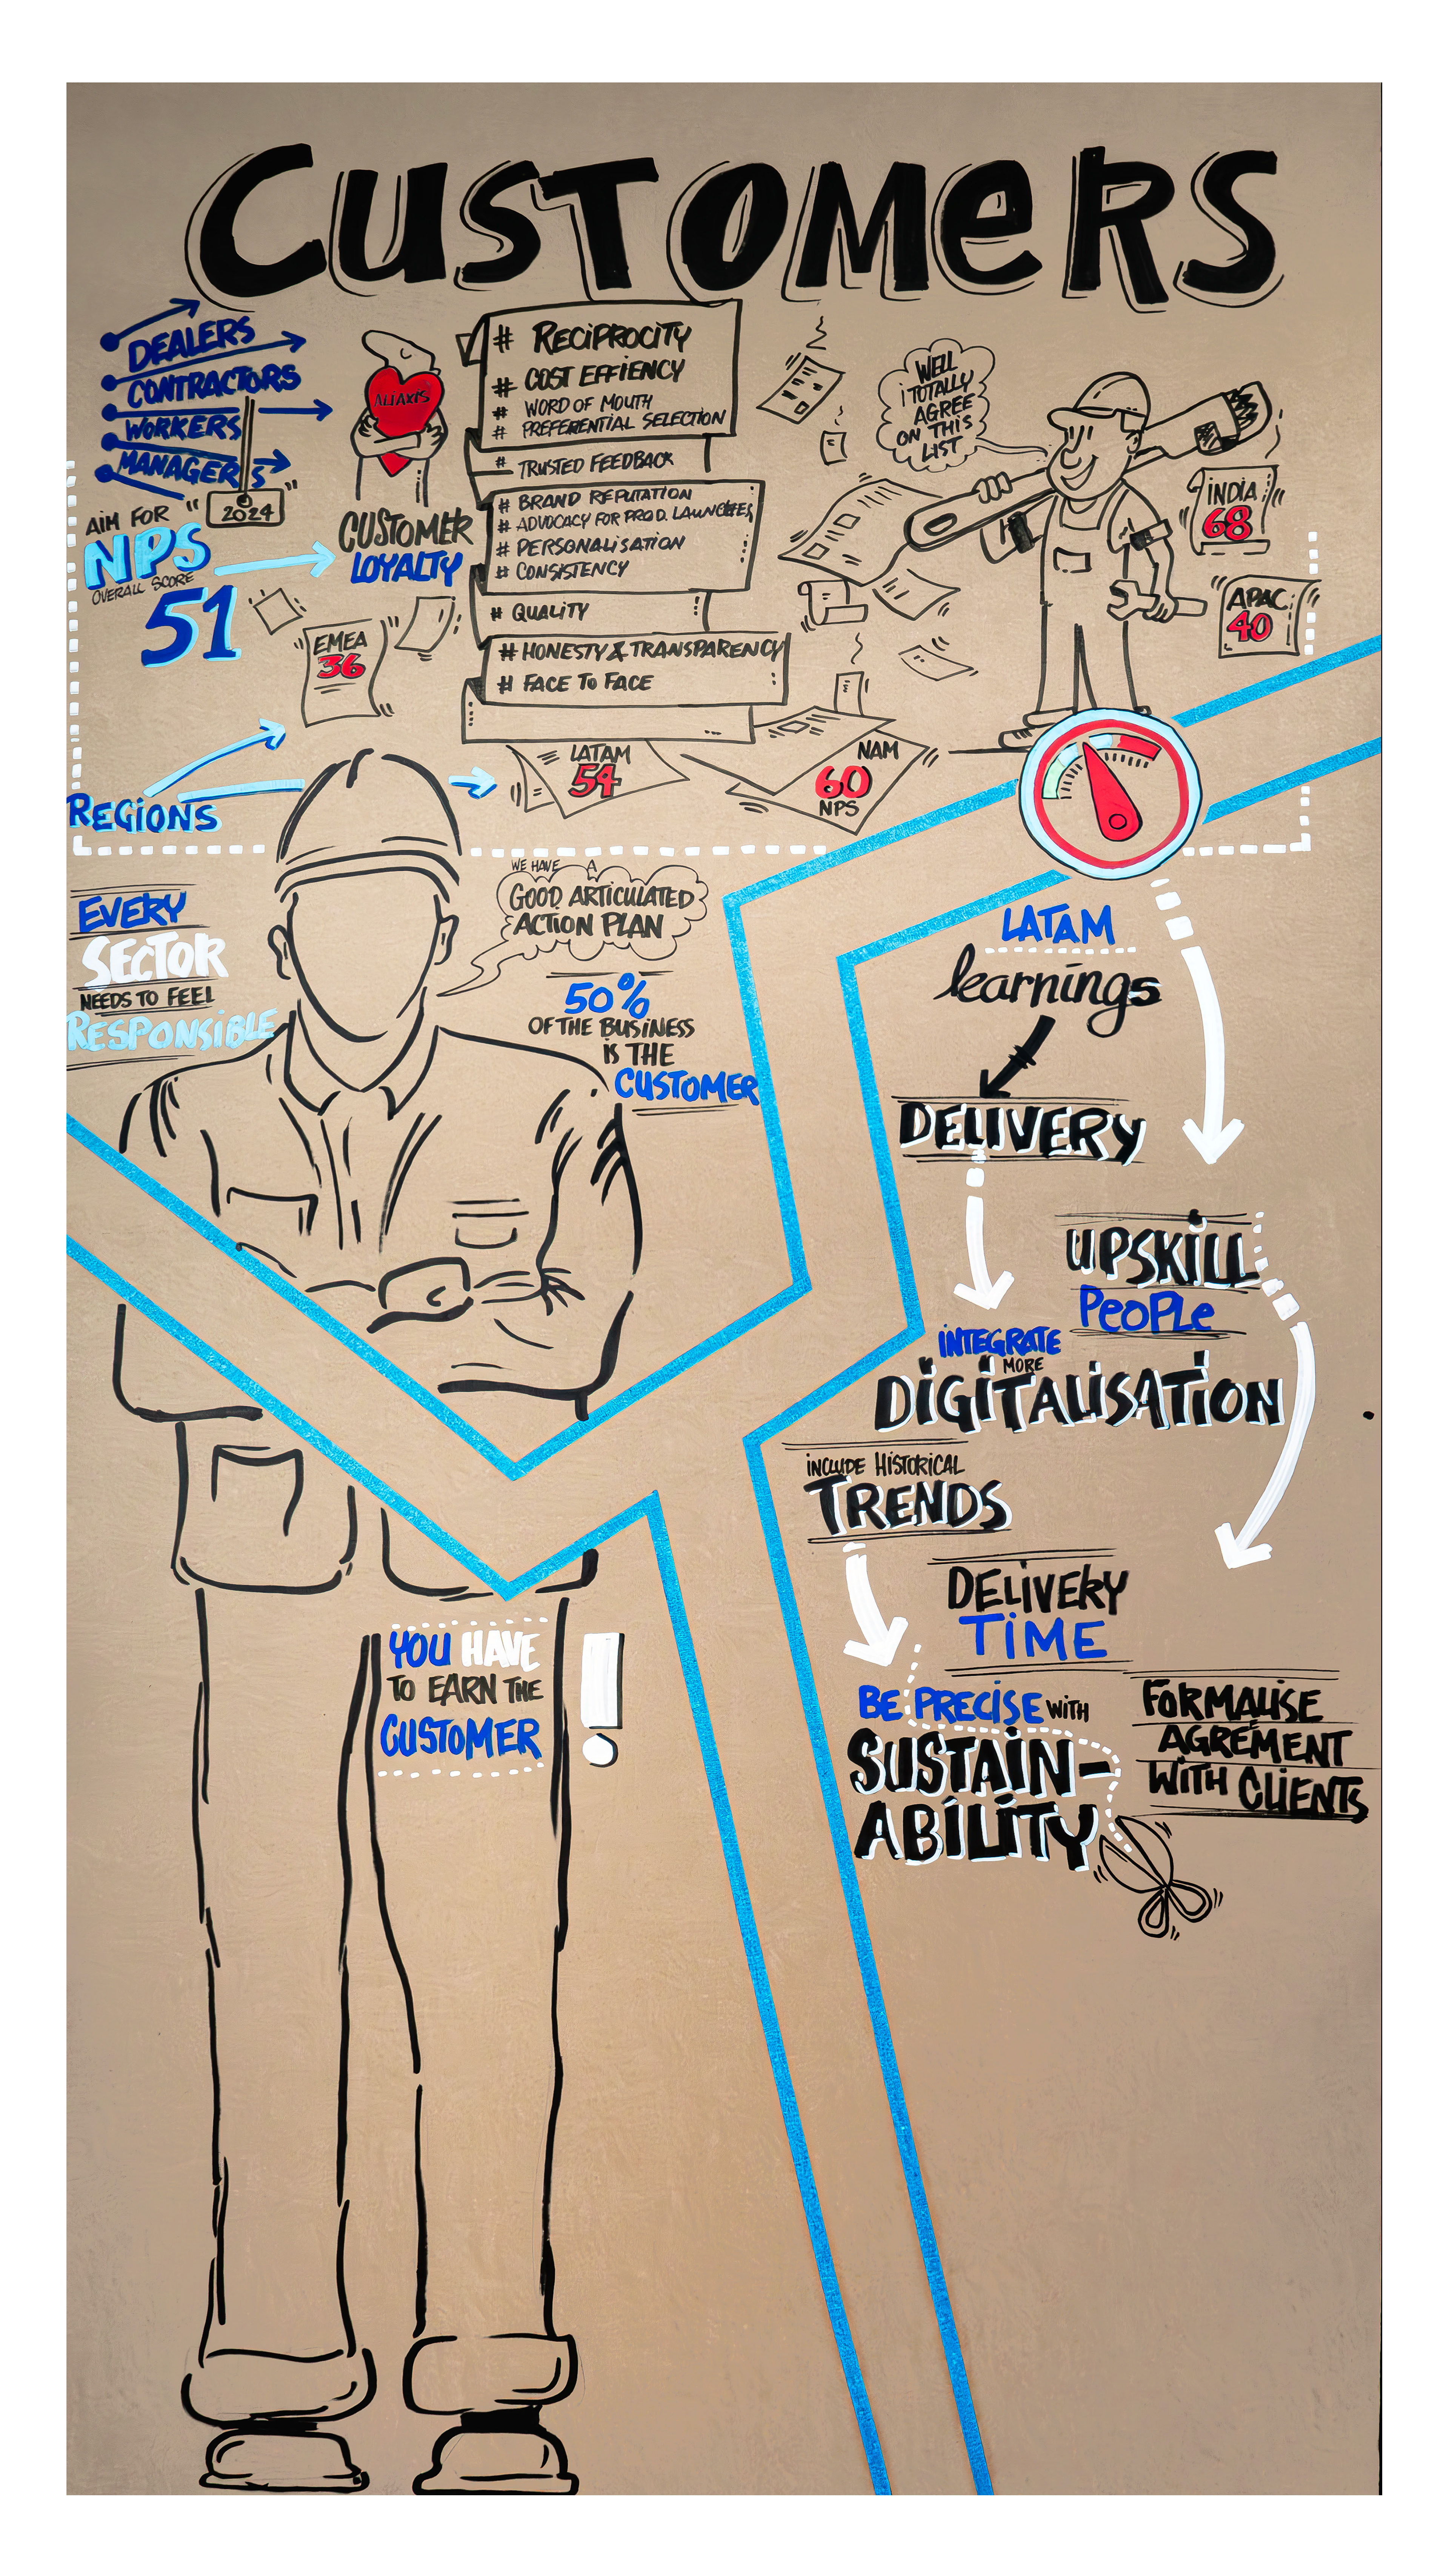 CUSTOMERS
DEALERS
CONTRACTORS
WORKERS
MANAGERS
AIM FOR
"2024"
NPS
OVERALL SCORE
51
ALIAXIS
CUSTOMER
LOYALTY
# RECIPROCITY
# COST EFFIENCY
# WORD OF MOUTH
# PREFERENTIAL SELECTION
# TRUSTED FEEDBACK
# BRAND REPUTATION
# ADVOCACY FOR PROD. LAUNCHES
# PERSONALISATION
# CONSISTENCY
# QUALITY
# HONESTY & TRANSPARENCY
# FACE TO FACE
WELL
I TOTALLY
AGREE
ON THIS
LIST
INDIA
68
APAC
40
EMEA
36
LATAM
54
NAM
60
NPS
REGIONS
EVERY
SECTOR
NEEDS TO FEEL
RESPONSIBLE
WE HAVE A
GOOD ARTICULATED
ACTION PLAN
50%
OF THE BUSINESS
IS THE
CUSTOMER
YOU HAVE
TO EARN THE
CUSTOMER
!
LATAM
learnings
DELIVERY
UPSKILL
PEOPLE
INTEGRATE
MORE
DIGITALISATION
INCLUDE HISTORICAL
TRENDS
DELIVERY
TIME
BE PRECISE WITH
SUSTAIN-
ABILITY
FORMALISE
AGREMENT
WITH CLIENTS